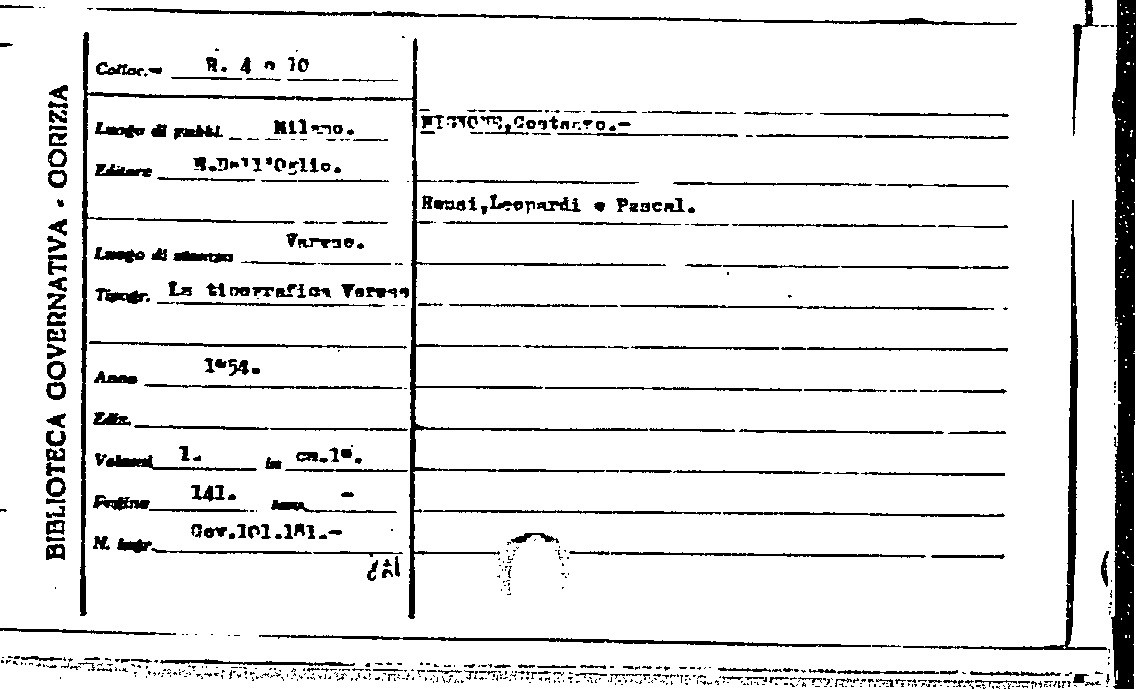 BIBLIOTECA GOVERNATIVA - GORIZIA
Colloc.-
Luogo di pubbl. Milano.
Editore E.Dall'Oglio.
Luogo di stampa Varese.
Tipogr. La tipografica Varese
Anno 1954.
Ediz.
Volumi 1. in cm.
Pagine 141. -
N. ingr.
MIGNONE,Costanzo.-
Rensi,Leopardi e Pascal.